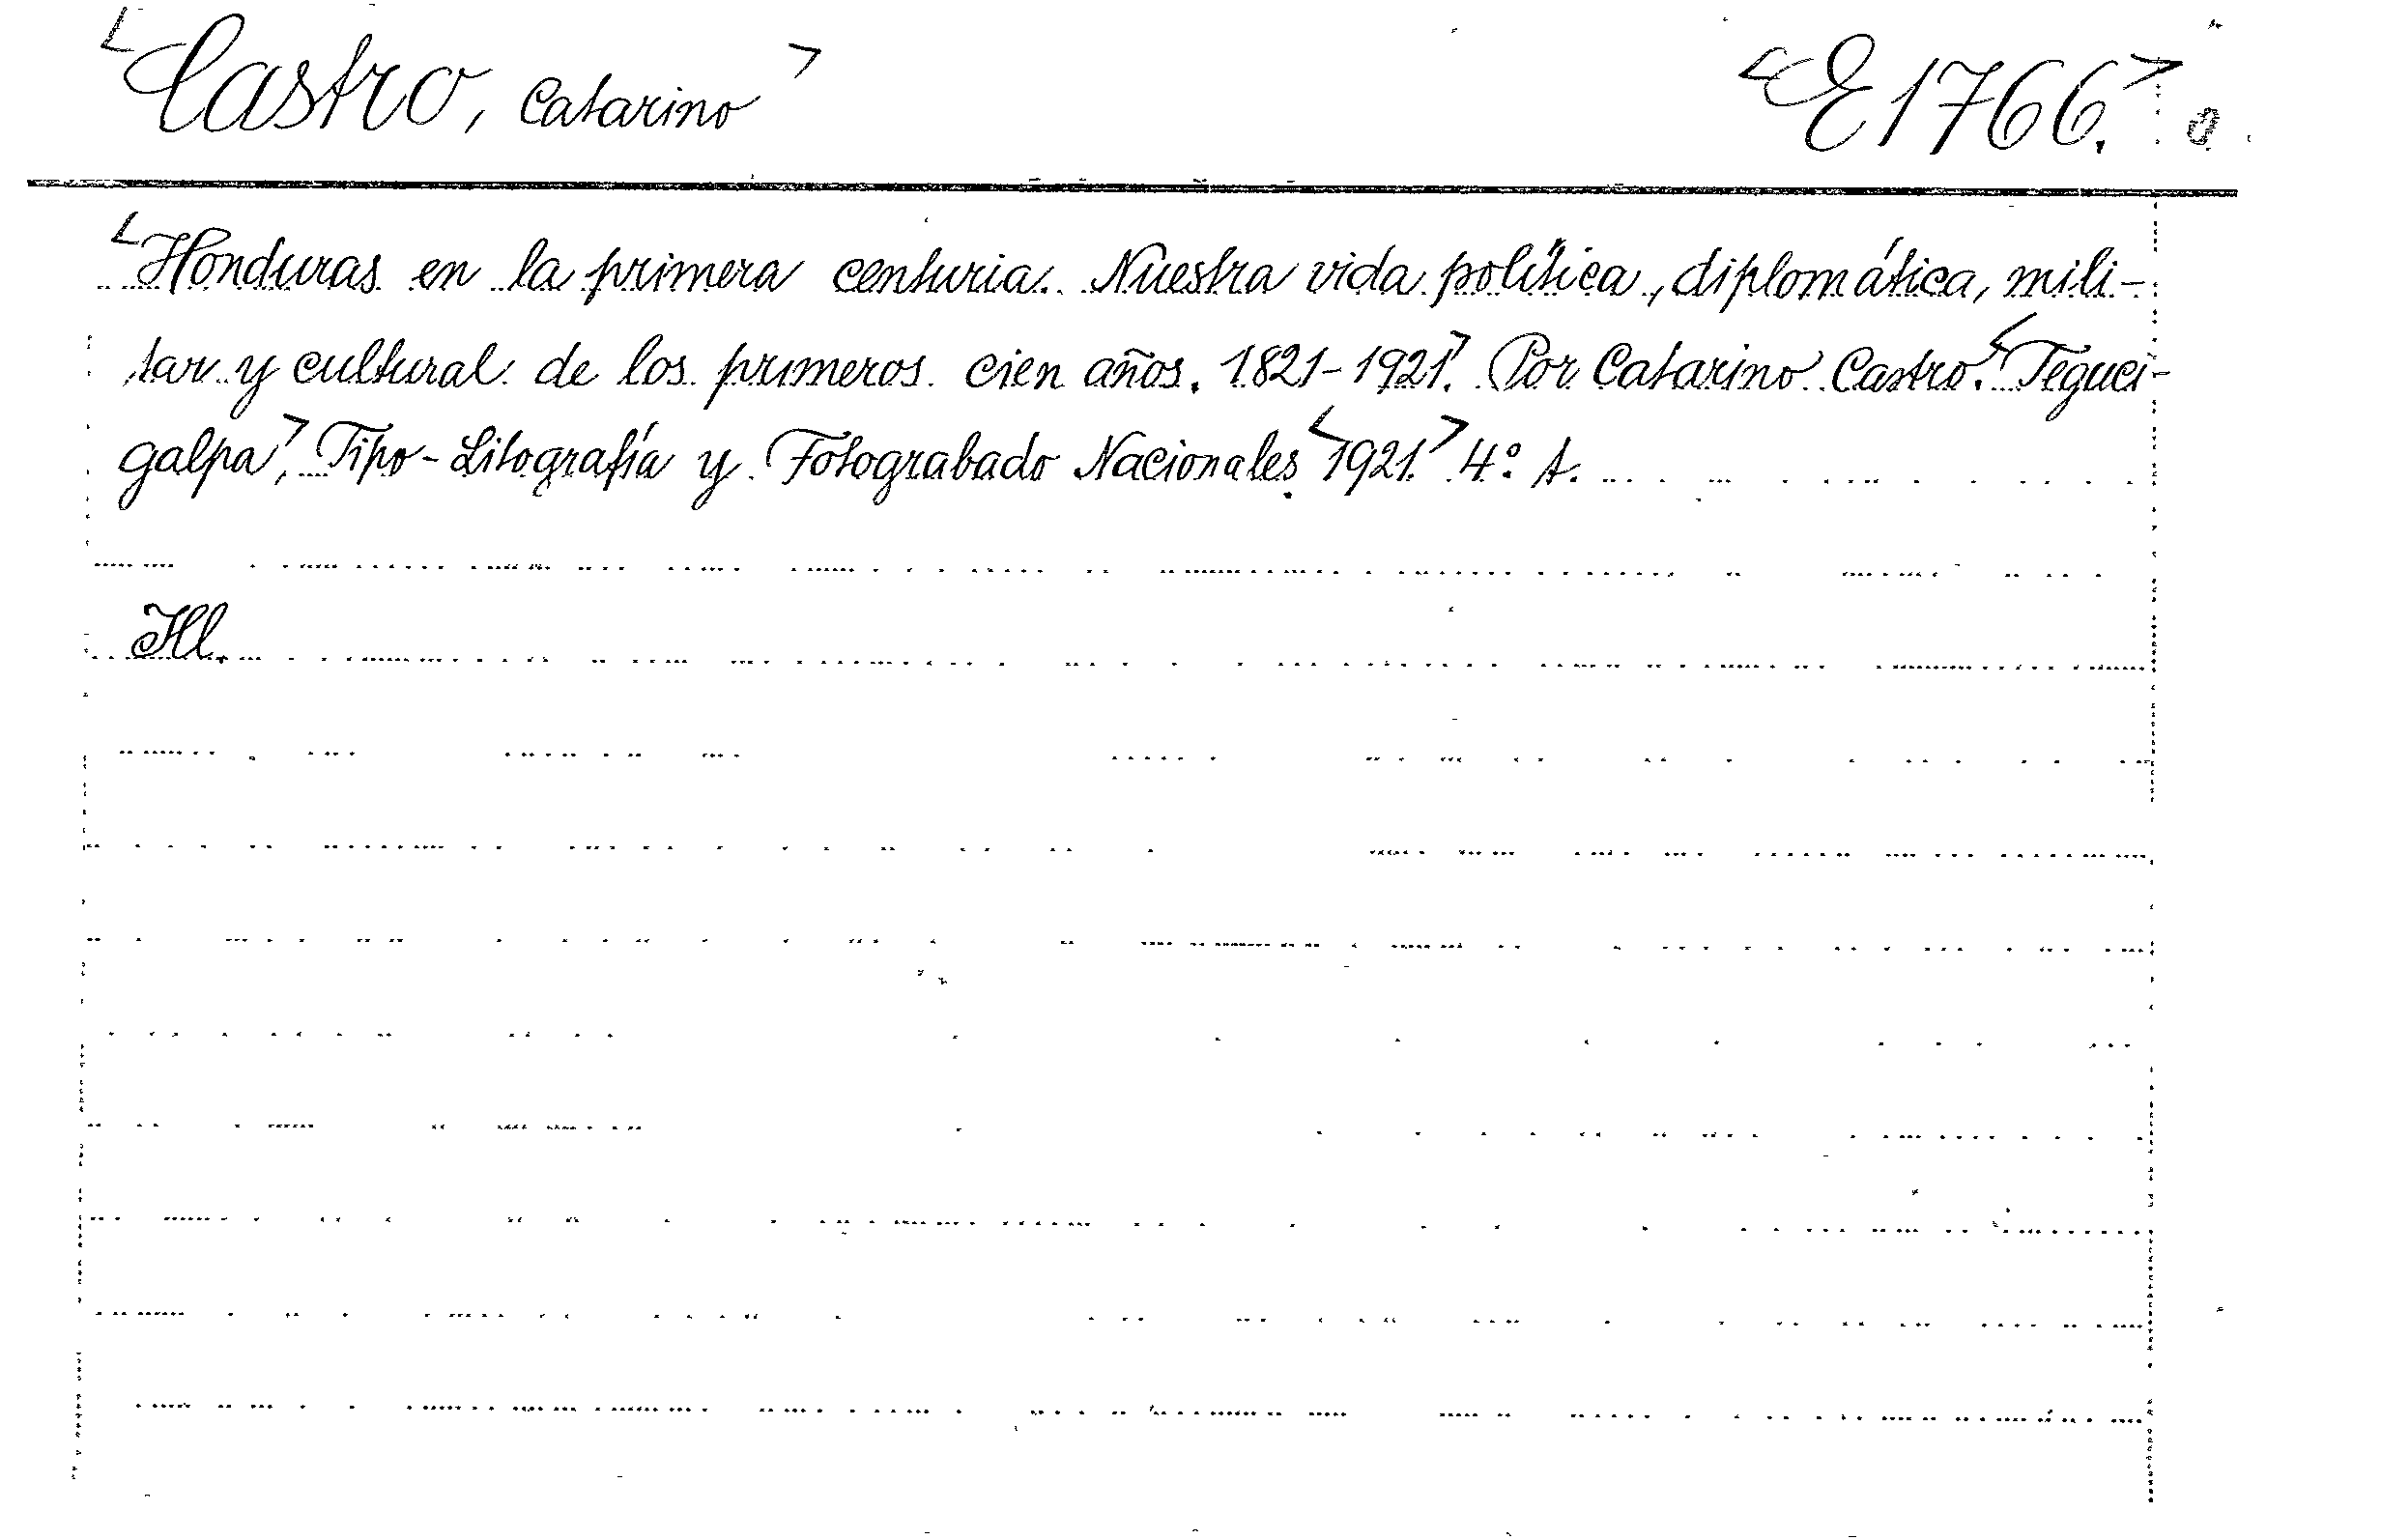 <Castro, Catarino> <E1766.>
<Honduras en la primera centuria. Nuestra vida política, diplomática, mili-
tar y cultural de los primeros cien años. 1821-1921>. Por Catarino Castro. <Teguci-
galpa>, Tipo-Litografía y Fotograbado Nacionales. <1921.> 4º. A.
Ill.